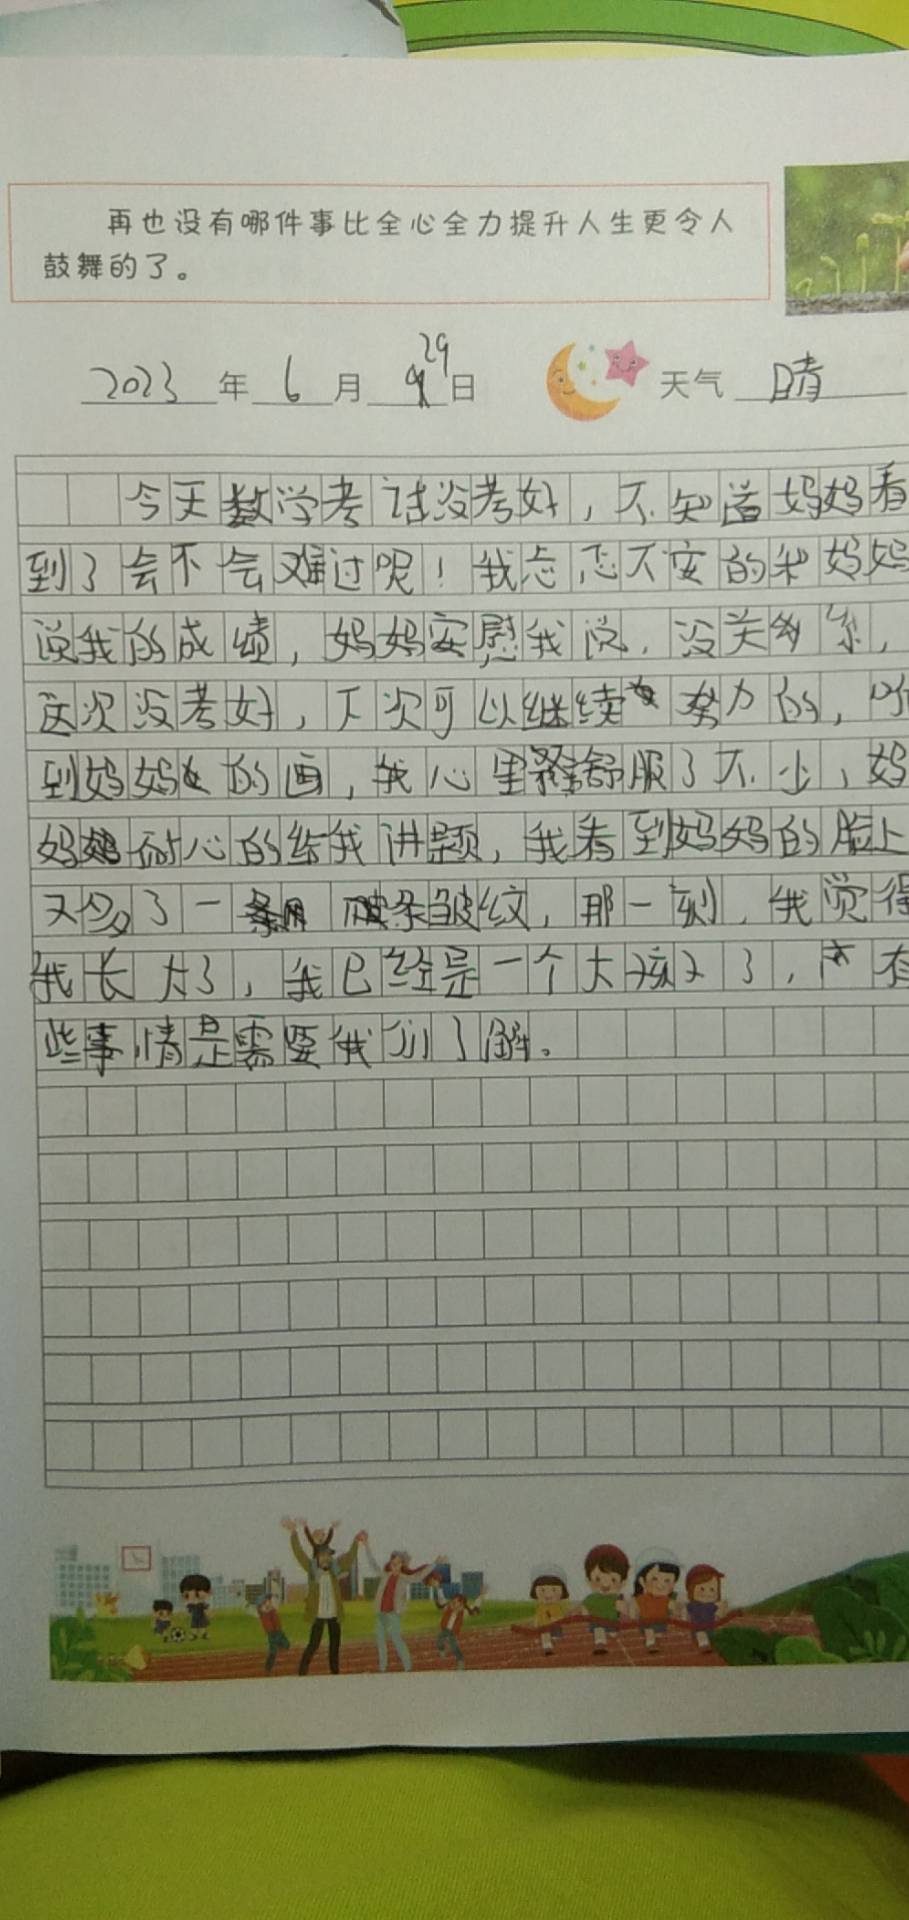 再也没有哪件事比全心全力提升人生更令人
鼓舞的了。
2023年6月29日 天气 晴
今天数学考试没考好,不知道妈妈看
到了会不会难过呢!我忐忑不安的和妈妈
说我的成绩,妈妈安慰我说,没关系,
这次没考好,下次可以继续努力的,听
到妈妈的画,我心里舒服了不少,妈
妈耐心的给我讲题,我看到妈妈的脸上
又多了一条皱纹,那一刻,我觉得
我长大了,我已经是一个大孩子了,有
些事情是需要我们了解。